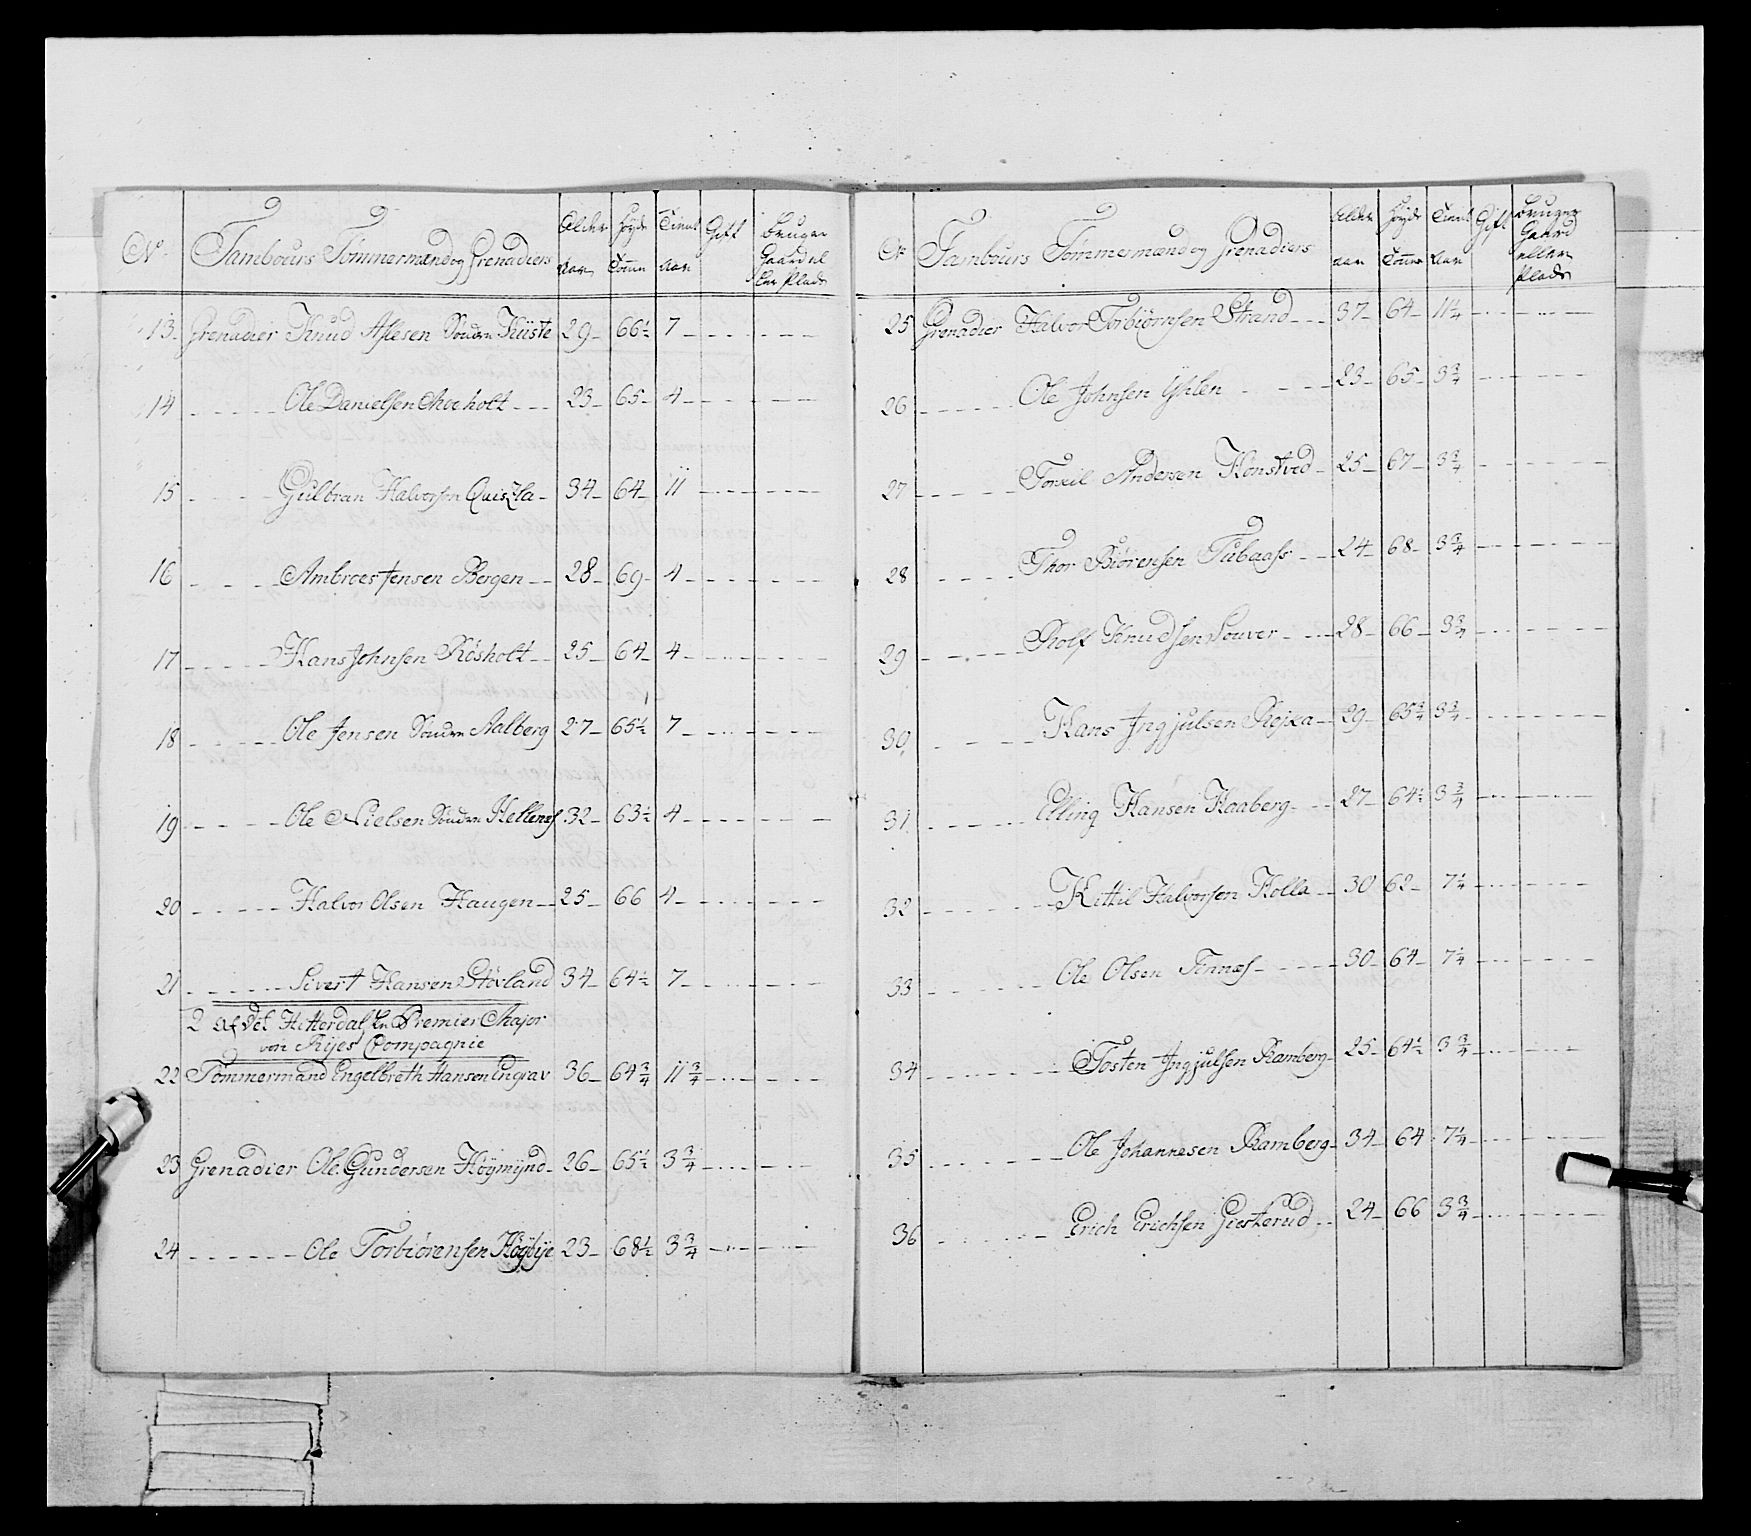 No. Tambours Tømmermænd og Grenadiers Alder Aar Høyde Tomer Tient Aar Gift Bruger Gaard el Ler Plads
13. Grenadier Knud Aslesen Søndre Kiiste 29 66½ 7
14 Ole Danielsen Aaeholt 23 65 4
15 Gulbran Halvorsen Quisla 34 64 11
16 Ambroes Jensen Bergen 28 69 4
17 Hans Johnsen Røsholt 25 64 4
18 Ole Jensen Søndre Aalberg 27 65½ 7
19 Ole Nielsen Søndre Hellenes 32 63½ 4
20 Halvor Olsen Haugen 25 66 4
21 Sivert Hansen Støvland 34 64½ 7
2 Af det Hitterdalske Premier Major
von Rijes Compagnie
22 Tømmermand Engelbreth Hansen Engrav 36 64¾ 11¾
23 Grenadier Ole Gundersen Höymÿnd 26 65½ 3¾
24 Ole Torbiörensen Höybÿe 23 68½ 3¾
No Tambours Tømmermænd og Grenadiers Alder aar Høyde Tomer Tient Aar Gift Bruger Gaard eller Plads
25 Grenadier Halvor Torbiørnsen Strand 37 64 11¼
26 Ole Johnsen Yhlen 23 65 3¾
27 Torkil Andersen Kønstved 25 67 3¾
28 Thor Biörensen Tubaass 24 68 3¾
29 Rolf Knudsen Louver 28 66 3¾
30 Hans Ingjulsen Rojka 29 65¾ 3¾
31 Elling Hansen Haaberg 27 64½ 3¾
32 Kittil Halvorsen Kolla 30 62 7¼
33 Ole Olsen Tinnes 30 64 7¼
34 Tosten Ingjulsen Ramberg 25 64½ 3¾
35 Ole Johannesen Ramberg 34 64 7¼
36 Erich Erichsen Giesterud 24 66 3¾